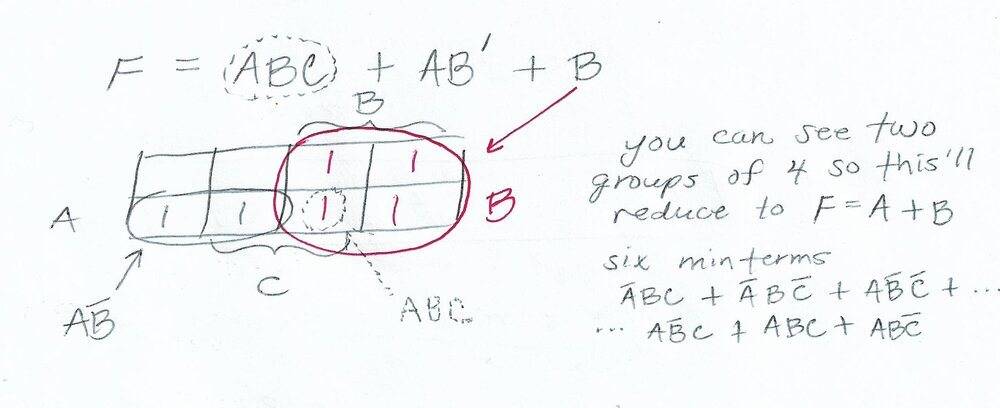 F = ABC + AB' + B
B
1 1
A 1 1 1 1 B
C
AB̅
ABC
you can see two
groups of 4 so this'll
reduce to F = A + B
six minterms
A̅BC + A̅BC̅ + AB̅C̅ + ...
... AB̅C + ABC + ABC̅